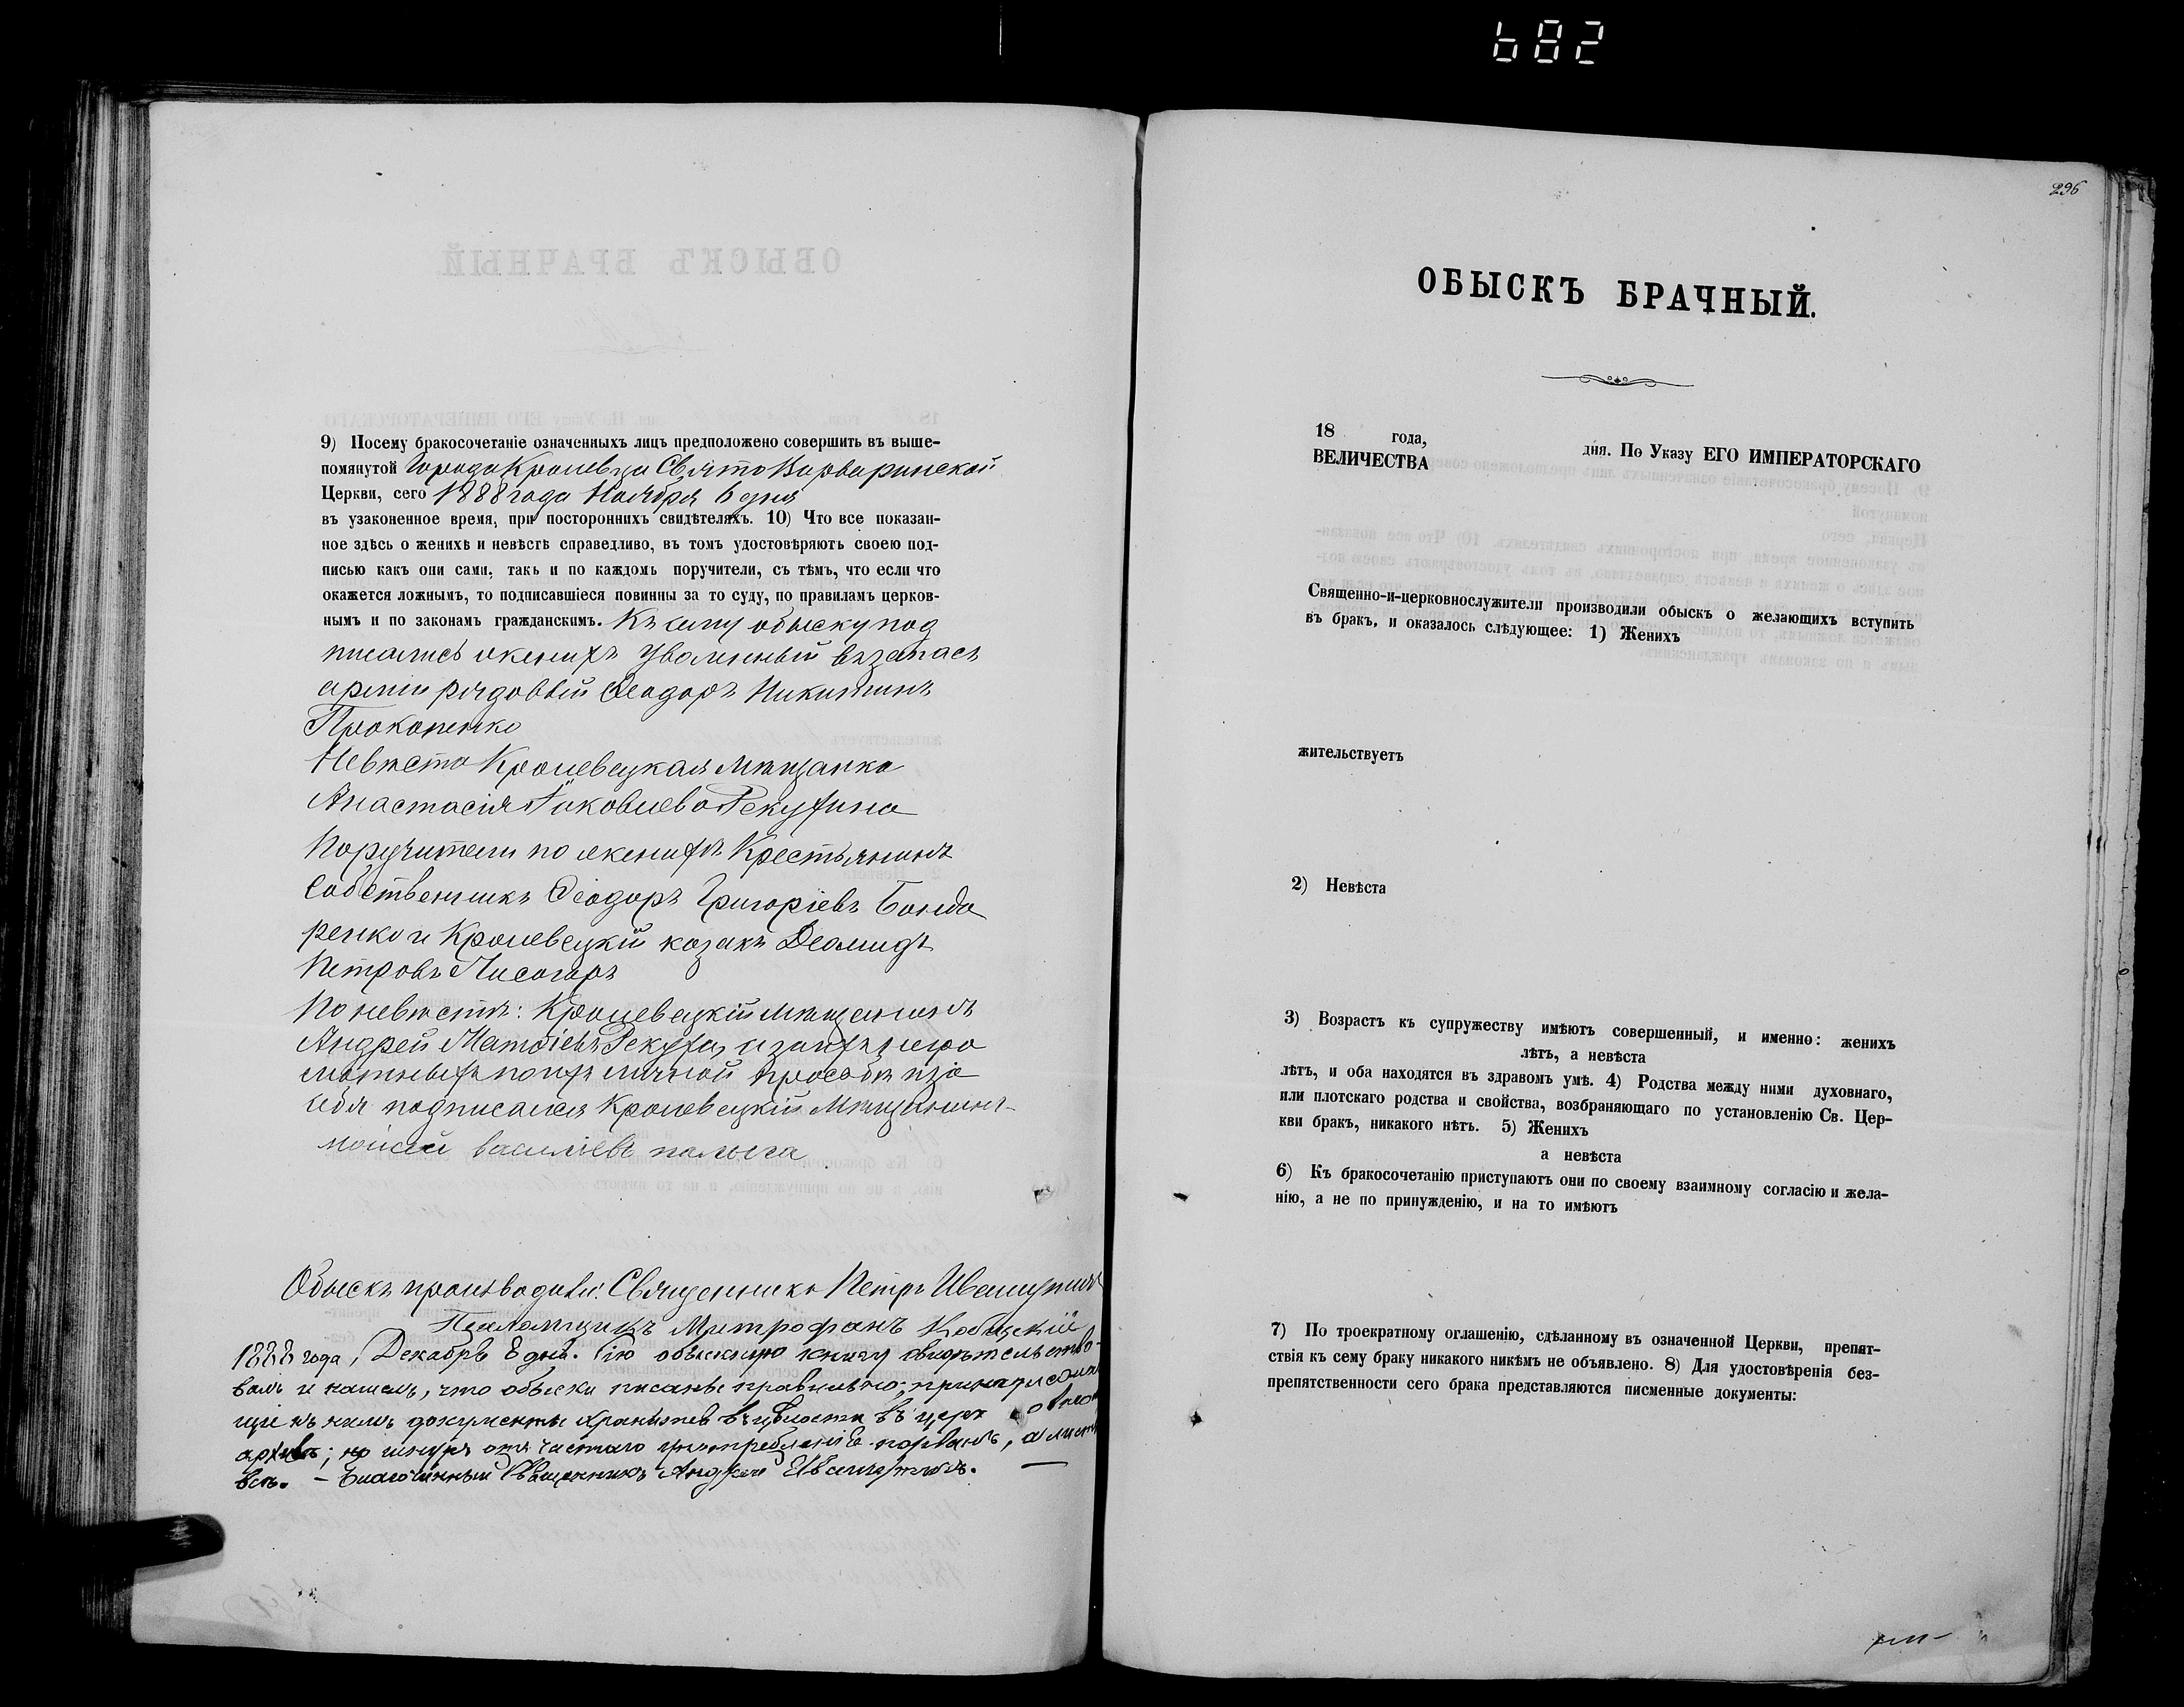 682
9) Посему бракосочетаніе означенныхъ лицъ предположено совершить въ выше-
помянутой Города Кролевца Свято Варваринской
Церкви, сего 1888 года Ноября 6 дня
въ узаконенное время, при постороннихъ свидѣтеляхъ. 10) Что все показан-
ное здѣсь о женихѣ и невѣстѣ справедливо, въ томъ удостовѣряютъ своею под-
писью какъ они сами, такъ и по каждомъ поручители, съ тѣмъ, что если что
окажется ложнымъ, то подписавшіеся повинны за то суду, по правиламъ церков-
нымъ и по законамъ гражданскимъ. Къ сему обыску под
писались женихъ уволенный въ запасъ
арміи рядовый Ѳеодоръ Никитинъ
Прокопенко
Невѣста Кролевецкая мѣщанка
Анастасія Яковлева Рекухина
Поручители по женихѣ Крестьянинъ
собственникъ Ѳеодоръ Григоріевъ Бонда
ренко и Кролевецкій козакъ Деомидъ
Петровъ Лисогоръ
По невѣстѣ: Кролевецкій мѣщанинъ
Андрей Матѳіевъ Рекуха, а за нихъ негра
мотныхъ по ихъ личной просьбѣ и за
себя подписался Кролевецкій мѣщанинъ
моисей василіевъ
Обыскъ производили: Священникъ Петръ
Псаломщикъ Митрофанъ
1888 года, Декабря 8 дня. Сію обыскную книгу свидѣтельство-
валъ и нашелъ, что обыски писаны правильно,
къ нимъ документы хранятся въ цѣлости въ
архивѣ; но шнуръ отъ частаго употребленія порванъ, а
всѣ. – Благочинный Священникъ Андрей
296
ОБЫСКЪ БРАЧНЫЙ.
18 года, дня. По Указу ЕГО ИМПЕРАТОРСКАГО
ВЕЛИЧЕСТВА
Священно-и-церковнослужители производили обыскъ о желающихъ вступить
въ бракъ, и оказалось слѣдующее: 1) Женихъ
жительствуетъ
2) Невѣста
3) Возрастъ къ супружеству имѣютъ совершенный, и именно: женихъ
лѣтъ, а невѣста
лѣтъ, и оба находятся въ здравомъ умѣ. 4) Родства между ними духовнаго,
или плотскаго родства и свойства, возбраняющаго по установленію Св. Цер-
кви бракъ, никакого нѣтъ. 5) Женихъ
а невѣста
6) Къ бракосочетанію приступаютъ они по своему взаимному согласію и жела-
нію, а не по принужденію, и на то имѣютъ
7) По троекратному оглашенію, сдѣланному въ означенной Церкви, препят-
ствія къ сему браку никакого никѣмъ не объявлено. 8) Для удостовѣренія без-
препятственности сего брака представляются писменные документы: